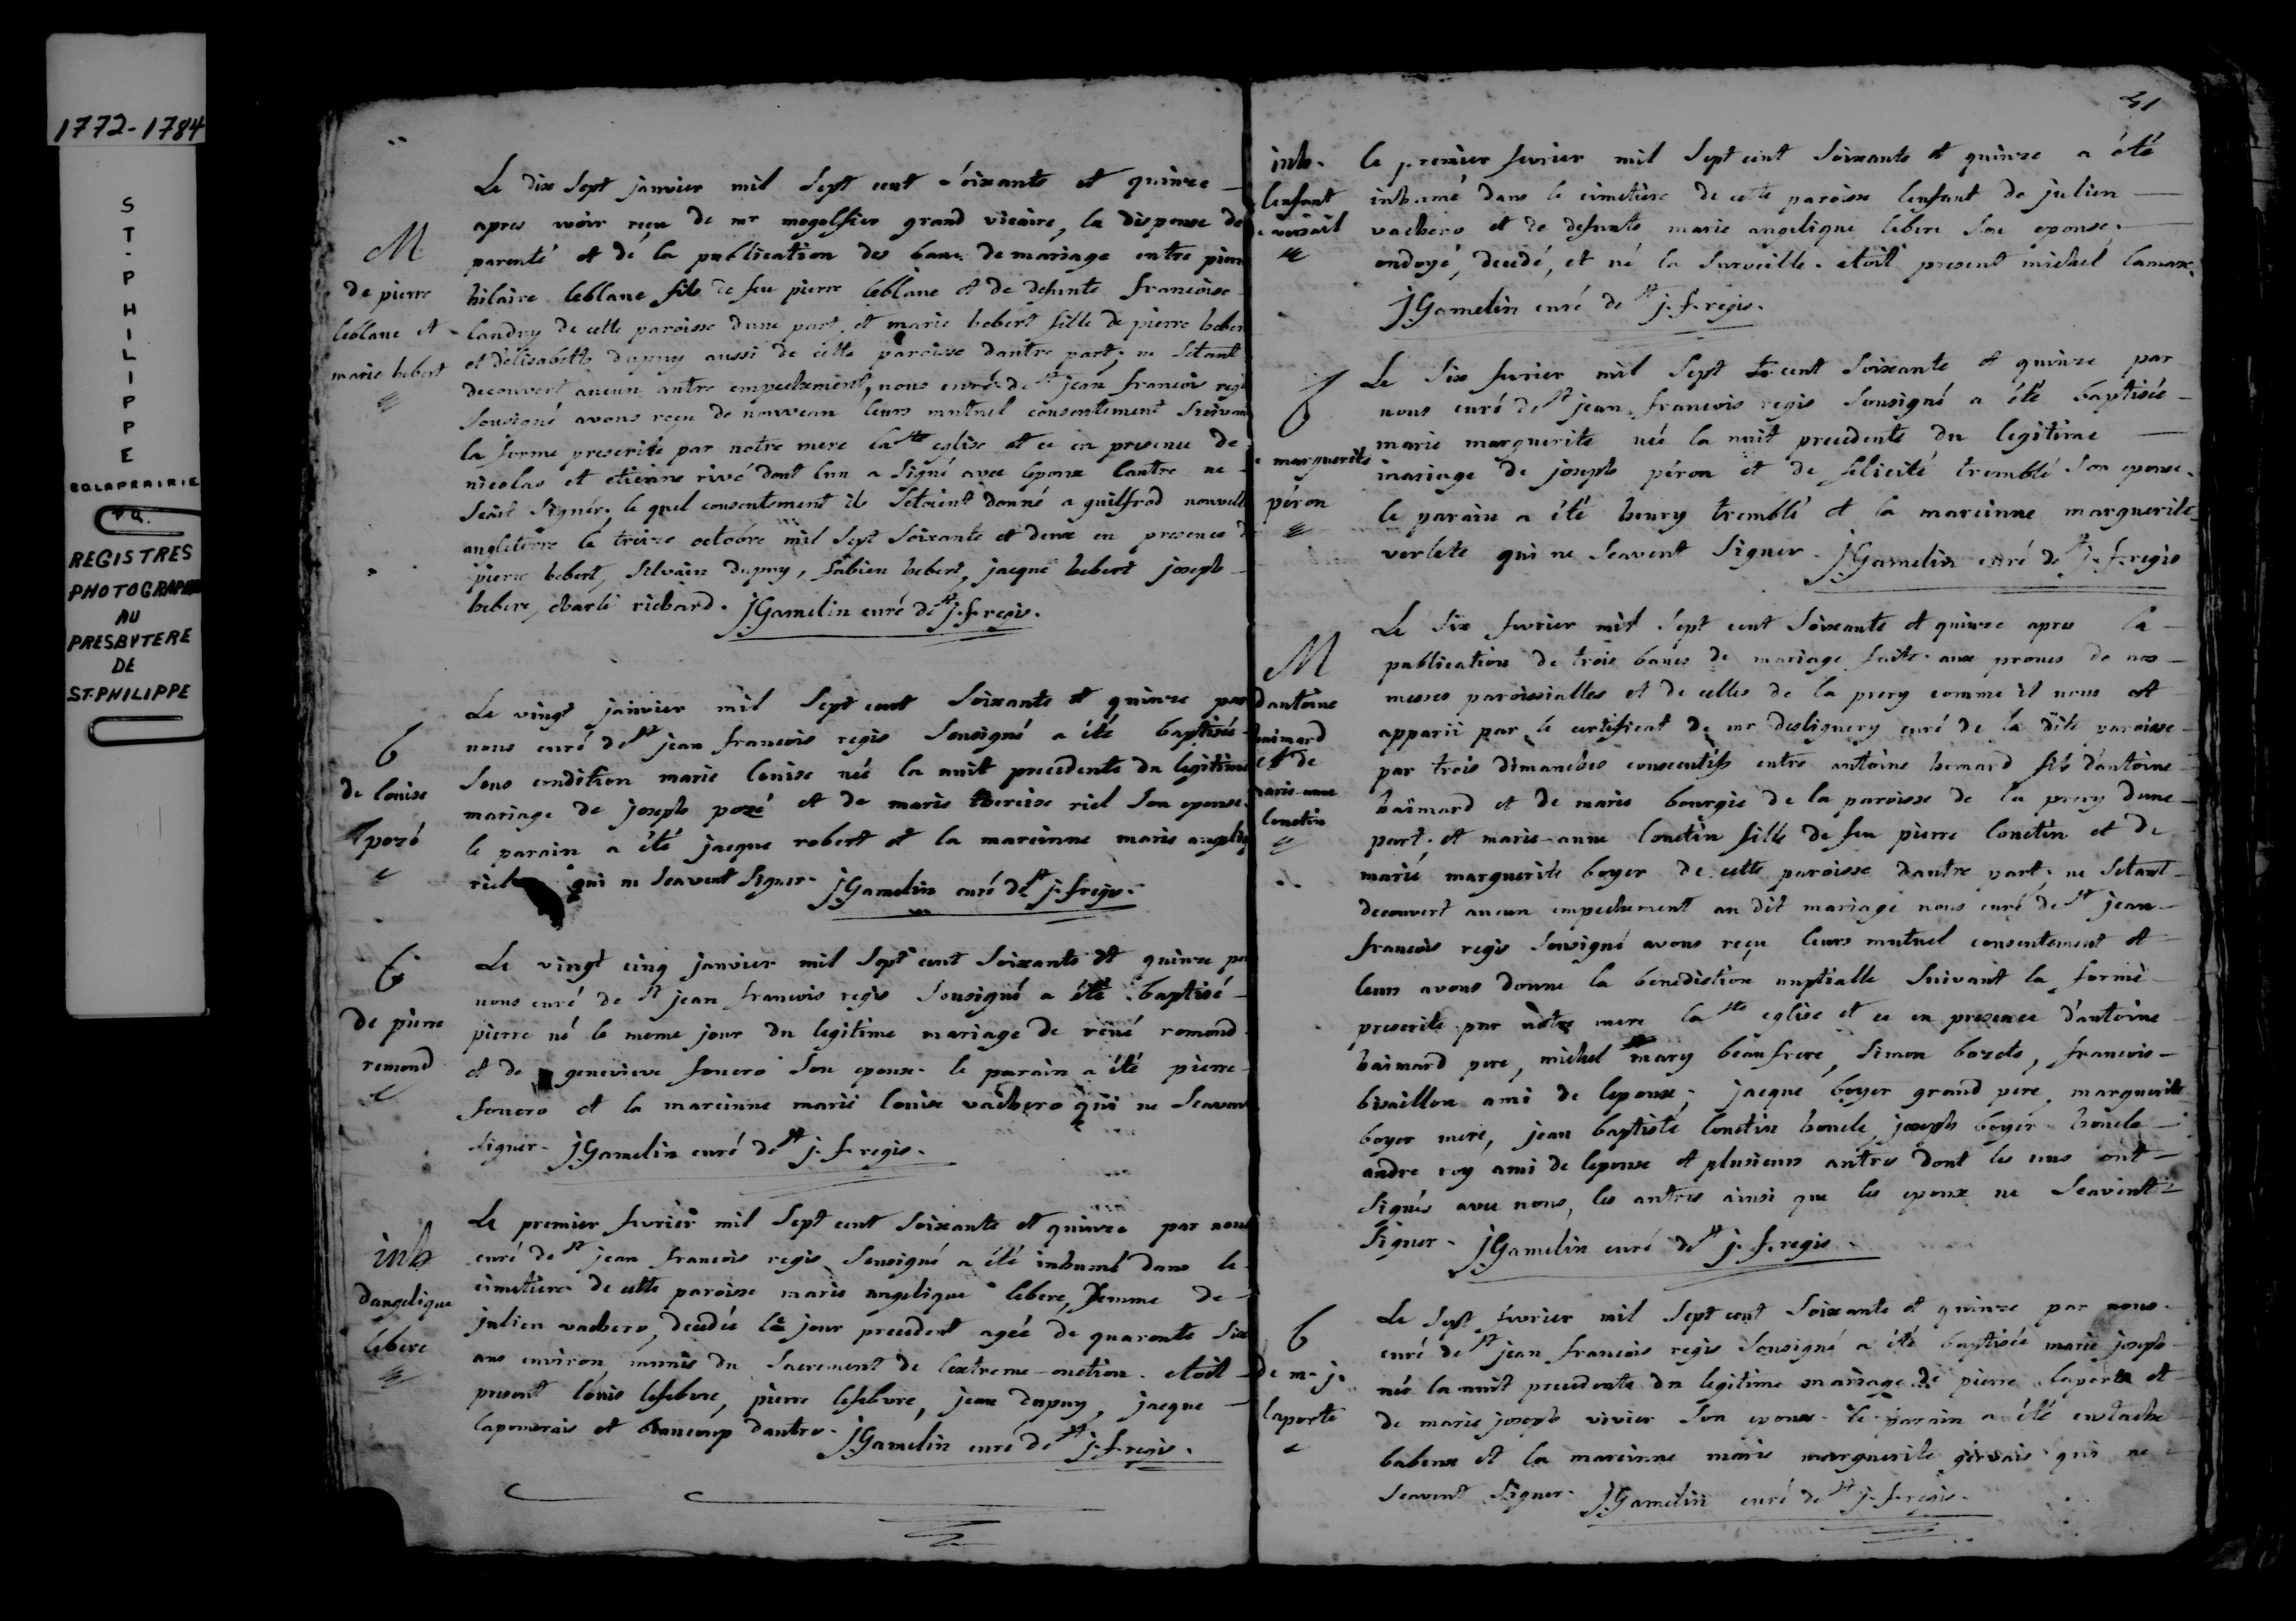 1772-1784
ST-PHILIPPE
CO LAPRAIRIE
REGISTRES
PHOTOGRAPHIE
AU
PRESBYTERE
DE
ST-PHILIPPE
M
de pierre
leblanc et
marie hebert
Le dix sept janvier mil sept cent soixante et quinze
apres avoir reçu de mr mogolfier grand vicaire, la dispense de
parenté et de la publication des bans de mariage entre pierre
hilaire leblanc fils de feu pierre leblanc et de defunte francoise
landry de cette paroisse dune part. et marie hebert fille de pierre heber
et délisabette dupuy aussi de cette paroisse dautre part; ne setant
decouvert aucun autre empechement, nous curé de st jean francois regis
sousigné avons reçu de nouveau leurs mutuel consentement suivant
la forme prescrite par notre mere la ste eglise et ce en presence de
nicolas et etienne rivé dont lun a signé avec lepoux lautre ne
scait signer. le quel consentement ils setoient donné a guilfrod nouvelle
angleterre le treize octobre mil sept soixante et deux en presence d
pierre hebert, silvain dupuy, fabien hebert, jacque hebert joseph
hebere, charle richard. jGamelin curé de st j. f. regis.
b
de louise
pozé
Le vingt janvier mil sept cent soixante et quinze par
nous curé de st jean francois regis sousigné a été baptisée
sous condition marie louise née la nuit precedente du legitime
mariage de joseph pozé et de marie therèise riel son epouse.
le parain a été jacque robert et la mareinne marie angeliq
riel qui ne scavent signer. jGamelin curé de st j. f. regis.
b
de pierre
remond
Le vingt cinq janvier mil sept cent soixante et quinze par
nous curé de st jean francois regis sousigné a été baptisé
pierre né le meme jour du legitime mariage de réné remond
et de genevieve fouero son epouse. le parain a été pierre
fouero et la mareinne marie louise vachero qui ne scavent
signer. jGamelin curé de st j. f. regis.
inh
dangelique
lebere
Le premier fevrier mil sept cent soixante et quinze par nous
curé de st jean francois regis sousigné a été inhumé dans le
cimetiere de cette paroisse marie angelique lebere, femme de
julien vachero, decedée le jour precedent agée de quarante six
ans environ munis du sacrement de lextreme-onction. etoit
present louis lefebvre, pierre lefebvre, jean dupuy, jacque
lapomerais et beaucoup dautre. jGamelin curé de st j. f. regis.
inh.
lenfant
le premier fevrier mil sept cent soixante et quinze a été
inhumé dans le cimetiere de cette paroisse lenfant de julien
vachero et de defunte marie angelique lebere son epouse.
ondoyé, decedé, et né la surveille. etoit present michel lamare.
jGamelin curé de st j. f. regis.
b
marguerite
péron
Le six fevrier mil sept cent soixante et quinze par
nous curé de st jean francois regis sousigné a été baptisée
marie marguerite née la nuit precedente du legitime
mariage de joseph péron et de felicité tremblé son epouse.
le parain a été henry tremblé et la mareinne marguerite
verlete qui ne scavent signer. jGamelin curé de st j. f. regis
M
dantoine
haimard
et de
marie-anne
lonctin
Le six fevrier mil sept cent soixante et quinze apres la
publication de trois bancs de mariage faite aux prones de nos
messes paroissialles et de celles de la prery comme il nous est
apparü par le certificat de mr deslignery curé de la dite paroisse
par trois dimanches consecutifs entre antoine hemard fils dantoine
haimard et de marie bourgie de la paroisse de la prery dune
part. et marie-anne lonctin fille de feu pierre lonctin et de
marie marguerite boyer de cette paroisse dautre part; ne setant
decouvert aucun empechement au dit mariage nous curé de st jean
francois regis sousigné avons reçu leurs mutuel consentement et
leurs avons donne la benediction nuptialle suivant la forme
prescrite par notre mere la ste eglise et ce en presence dantoine
haimard pere, michel mary beaufrere, simon bozete, francois
bisaillon ami de lepoux; jacque boyer grand pere, marguerite
boyer mere, jean baptiste lonctin honcle, joseph boyer honcle
andre roy ami de lepouse et plusieurs autres dont les uns ont
signés avec nous, les autres ainsi que les epoux ne scavent
signer. jGamelin curé de st j. f. regis.
b
de m-j.
laporte
Le sept fevrier mil sept cent soixante et quinze par nous
curé de st jean francois regis sousigné a été baptisée marie joseph
née la nuit precedente du legitime mariage de pierre laporte et
de marie joseph vivier son epouse. le parain a été eustache
babeux et la mareinne marie marguerite gervais qui ne
scavent signer. jGamelin curé de st j. f. regis.